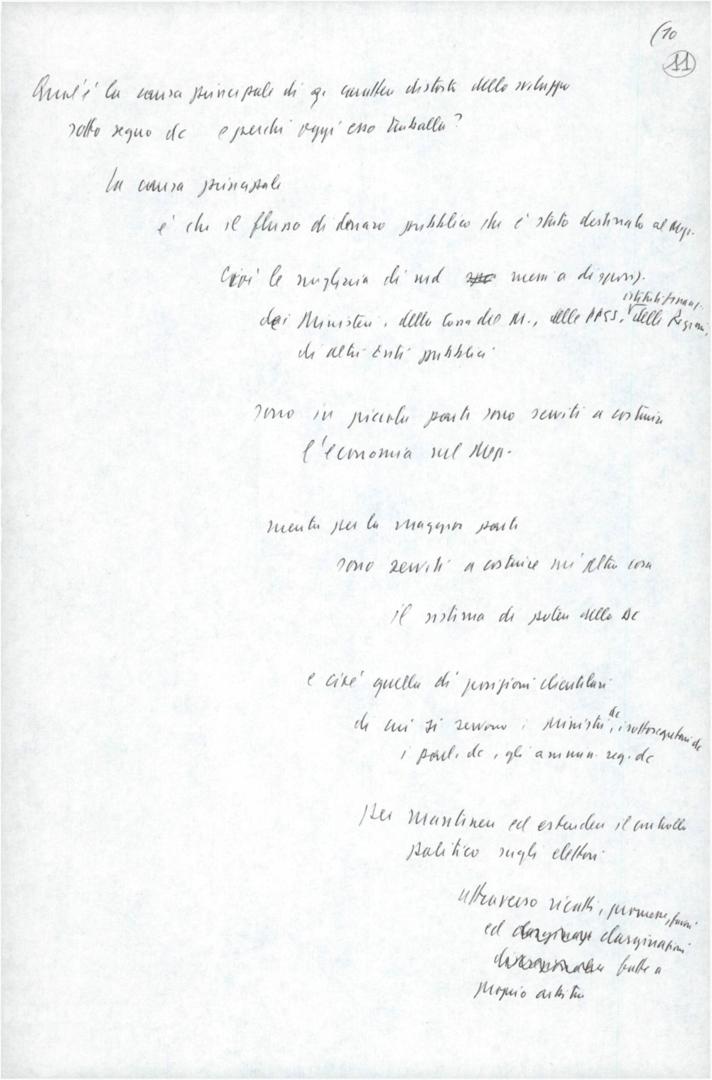 (10
11
Qual'è la causa principale di q. carattere distorto dello sviluppo
sotto segno dc e perché oggi esso traballa?
La causa principale
è che il flusso di denaro pubblico che è stato destinato al Mezz.
Cioè le migliaia di md messi a disposiz.
dei Ministeri, della Cassa del M., delle PPSS, istituti finanz. delle Regioni,
di altri Enti pubblici
sono in piccola parte sono serviti a costruire
l'economia nel Mezz.
mentre per la maggior parte
sono serviti a costruire un'altra cosa
il sistema di potere della DC
e cioè quella di posizioni clientelari
di cui si servono i Ministri dc, i sottosegretari dc
i parl. dc, gli ammin. reg. dc
per mantenere ed estendere il controllo
politico sugli elettori
attraverso ricatti, promesse, favori
ed elargizioni
fatte a
proprio arbitrio